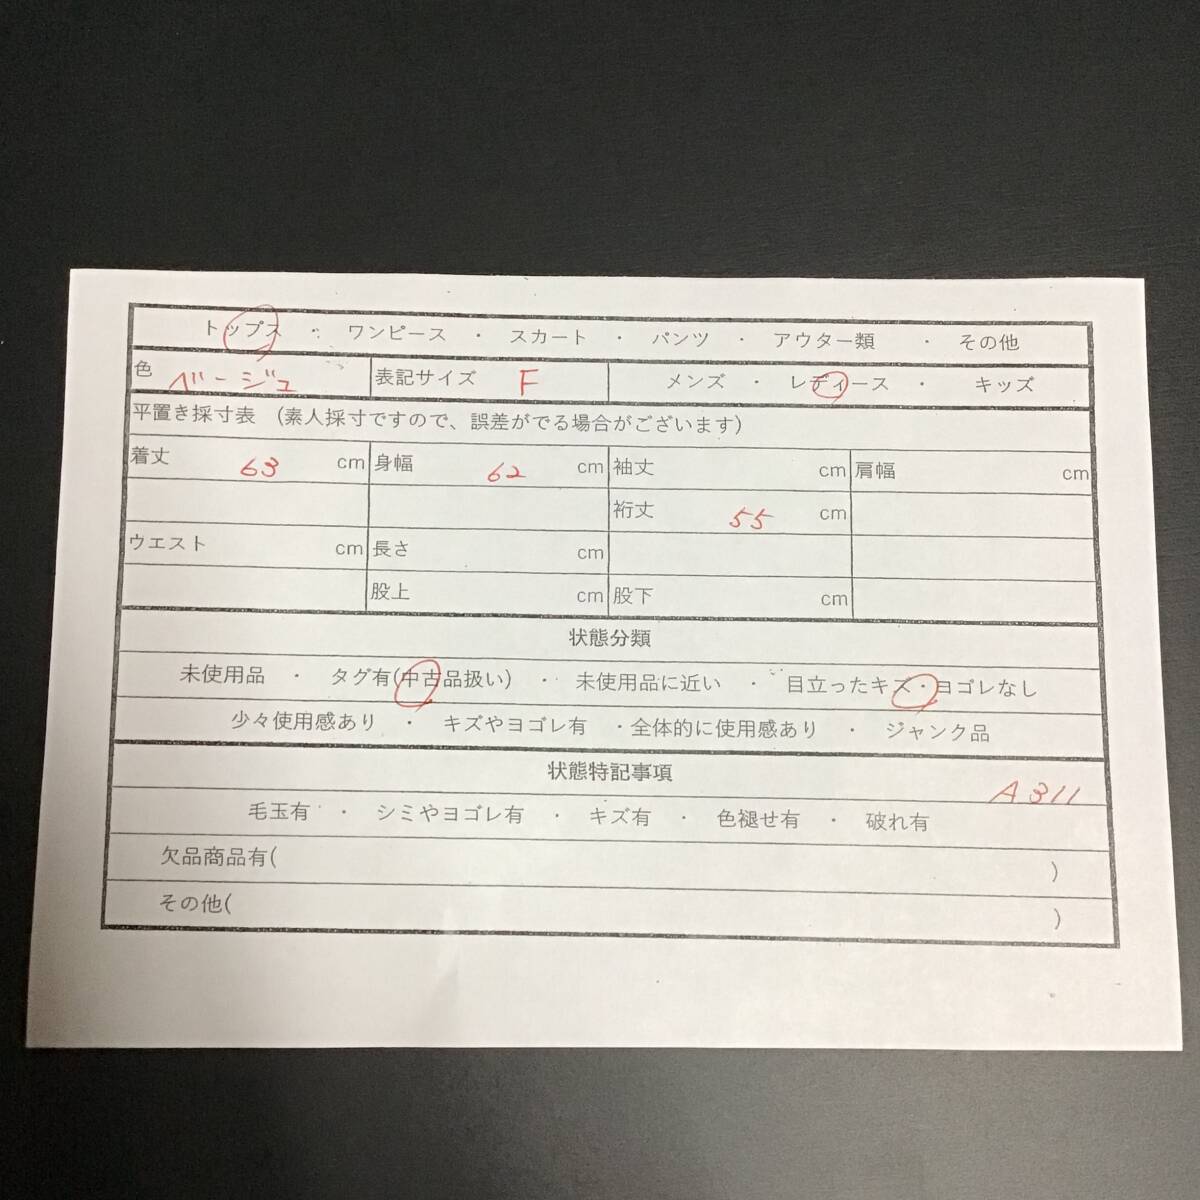 トップス ・ ワンピース ・ スカート ・ パンツ ・ アウター類 ・ その他
色 ベージュ 表記サイズ F メンズ ・ レディース ・ キッズ
平置き採寸表 (素人採寸ですので、誤差がでる場合がございます)
着丈 63 cm 身幅 62 cm 袖丈 cm 肩幅 cm
裄丈 55 cm
ウエスト cm 長さ cm
股上 cm 股下 cm
状態分類
未使用品 ・ タグ有(中古品扱い) ・ 未使用品に近い ・ 目立ったキズ・ヨゴレなし
少々使用感あり ・ キズやヨゴレ有 ・全体的に使用感あり ・ ジャンク品
状態特記事項
A311
毛玉有 ・ シミやヨゴレ有 ・ キズ有 ・ 色褪せ有 ・ 破れ有
欠品商品有( )
その他( )